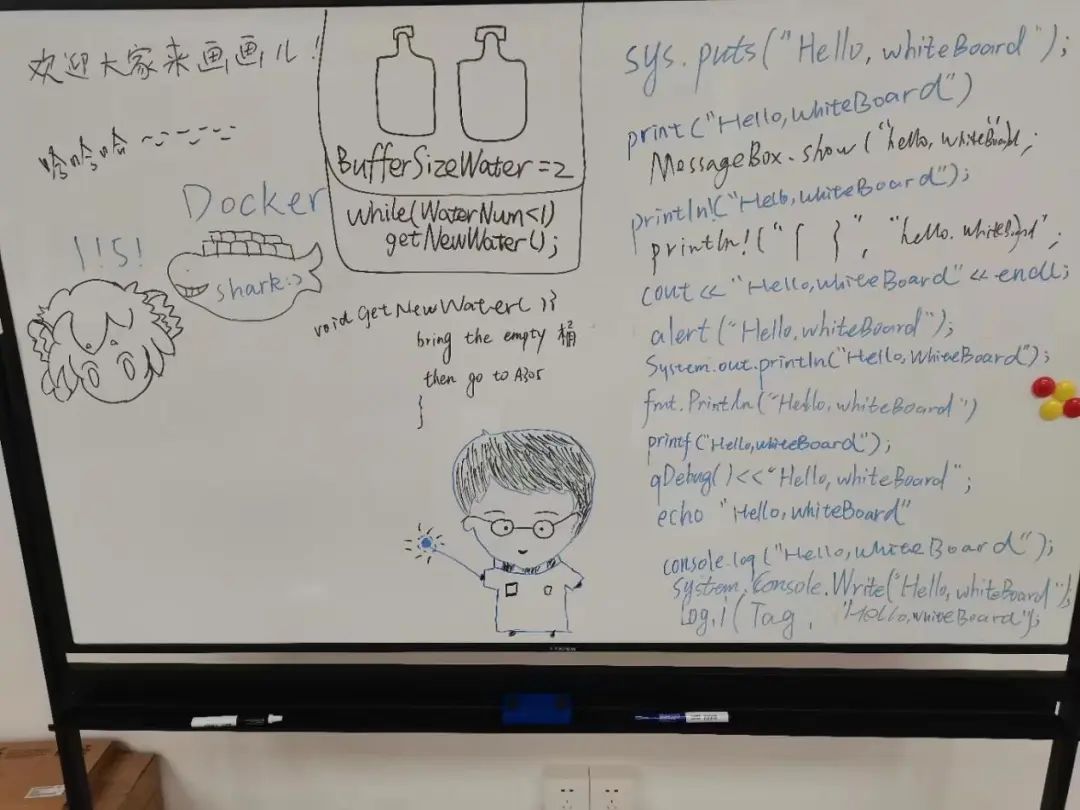 欢迎大家来画画儿！
哈哈哈~~~~~
Docker
shark:>
1!5!
BufferSizeWater=2
while(WaterNum<1)
getNewWater();
void getNewWater(){
bring the empty 桶
then go to A305
}
sys.puts("Hello, whiteBoard");
print("Hello,whiteBoard")
MessageBox.show("hello, whiteBoard");
println!("Hello,whiteBoard");
println!("{ }", "hello. whiteBoard";
cout << "Hello,whiteBoard" << endl;
alert("Hello,whiteBoard");
System.out.println("Hello,WhiteBoard");
fmt.Println("Hello,whiteBoard")
printf("Hello,whiteBoard");
qDebug()<<"Hello,whiteBoard";
echo "Hello,whiteBoard"
console.log("Hello,whiteBoard");
System.Console.Write("Hello,whiteBoard");
Log.i(Tag, "Hello,whiteBoard");